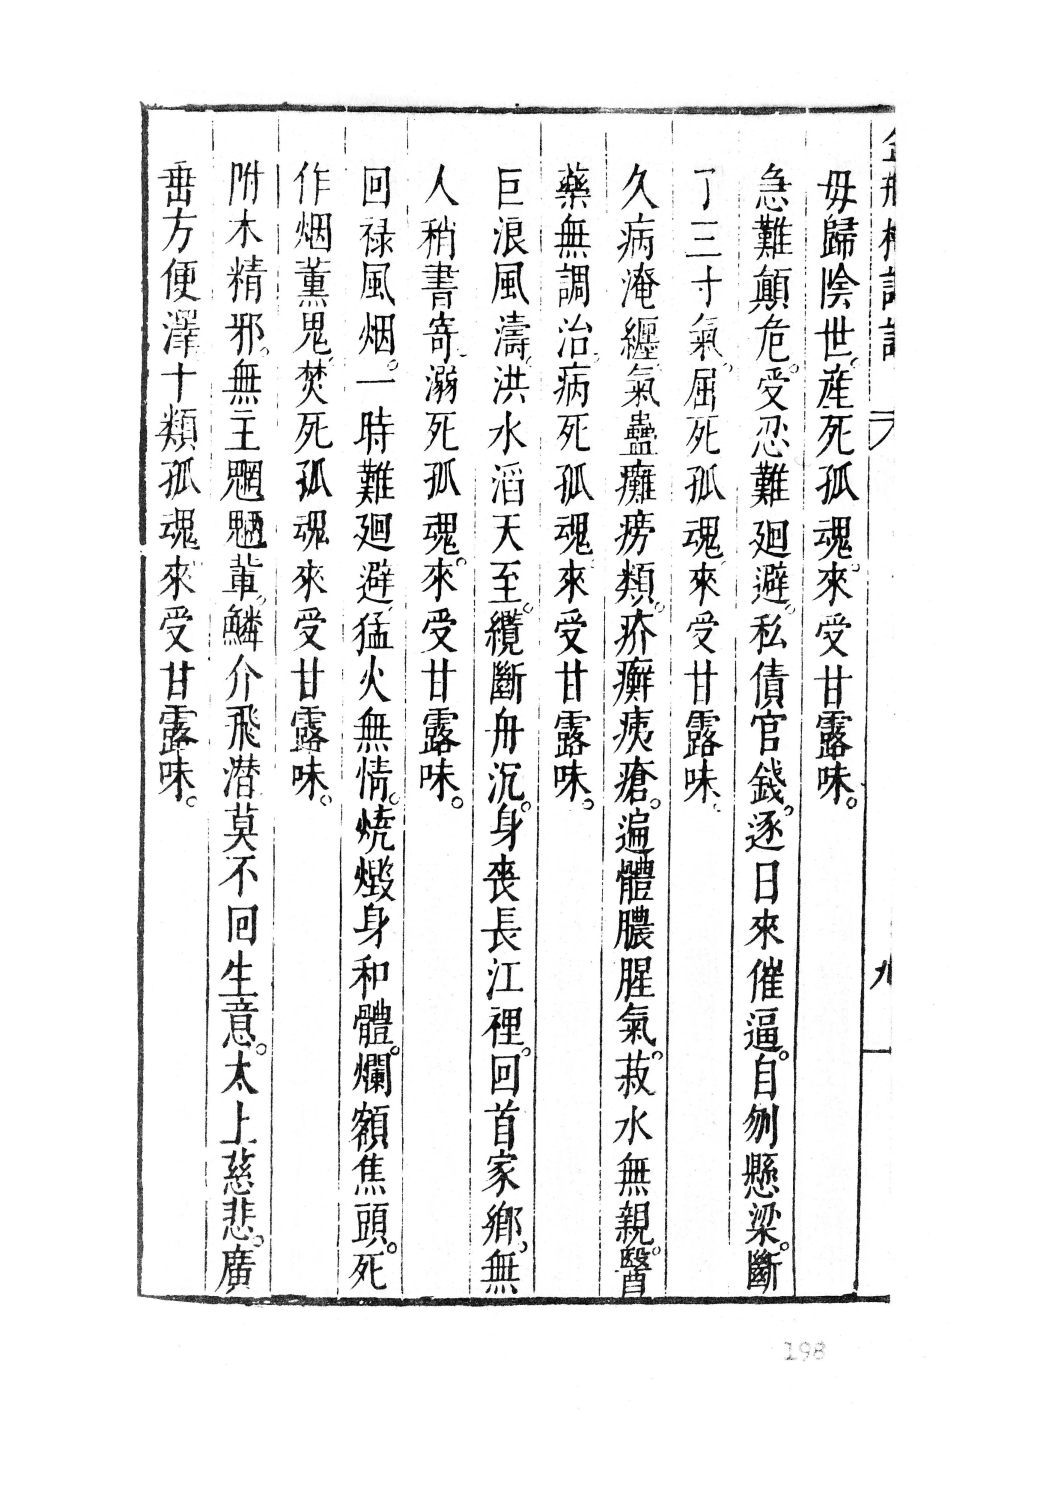 母歸陰世。産死孤魂。來受甘露味。
急難顛危。受忍難廻避。私債官錢。逐日來催逼。自刎懸梁。斷
了三寸氣。屈死孤魂。來受甘露味。
久病淹纏。氣蠱癱痨類。疥癬痍瘡。遍體膿腥氣。菽水無親。醫
藥無調治。病死孤魂。來受甘露味。
巨浪風濤。洪水滔天至。纜斷舟沉。身喪長江裡。回首家鄉。無
人稍書寄。溺死孤魂。來受甘露味。
回祿風烟。一時難廻避。猛火無情。焼煅身和體。爛額焦頭。死
作烟薰鬼。焚死孤魂。來受甘露味。
附木精邪。無主魍魎輩。鱗介飛潜。莫不回生意。太上慈悲。廣
垂方便澤。十類孤魂。來受甘露味。
九
198